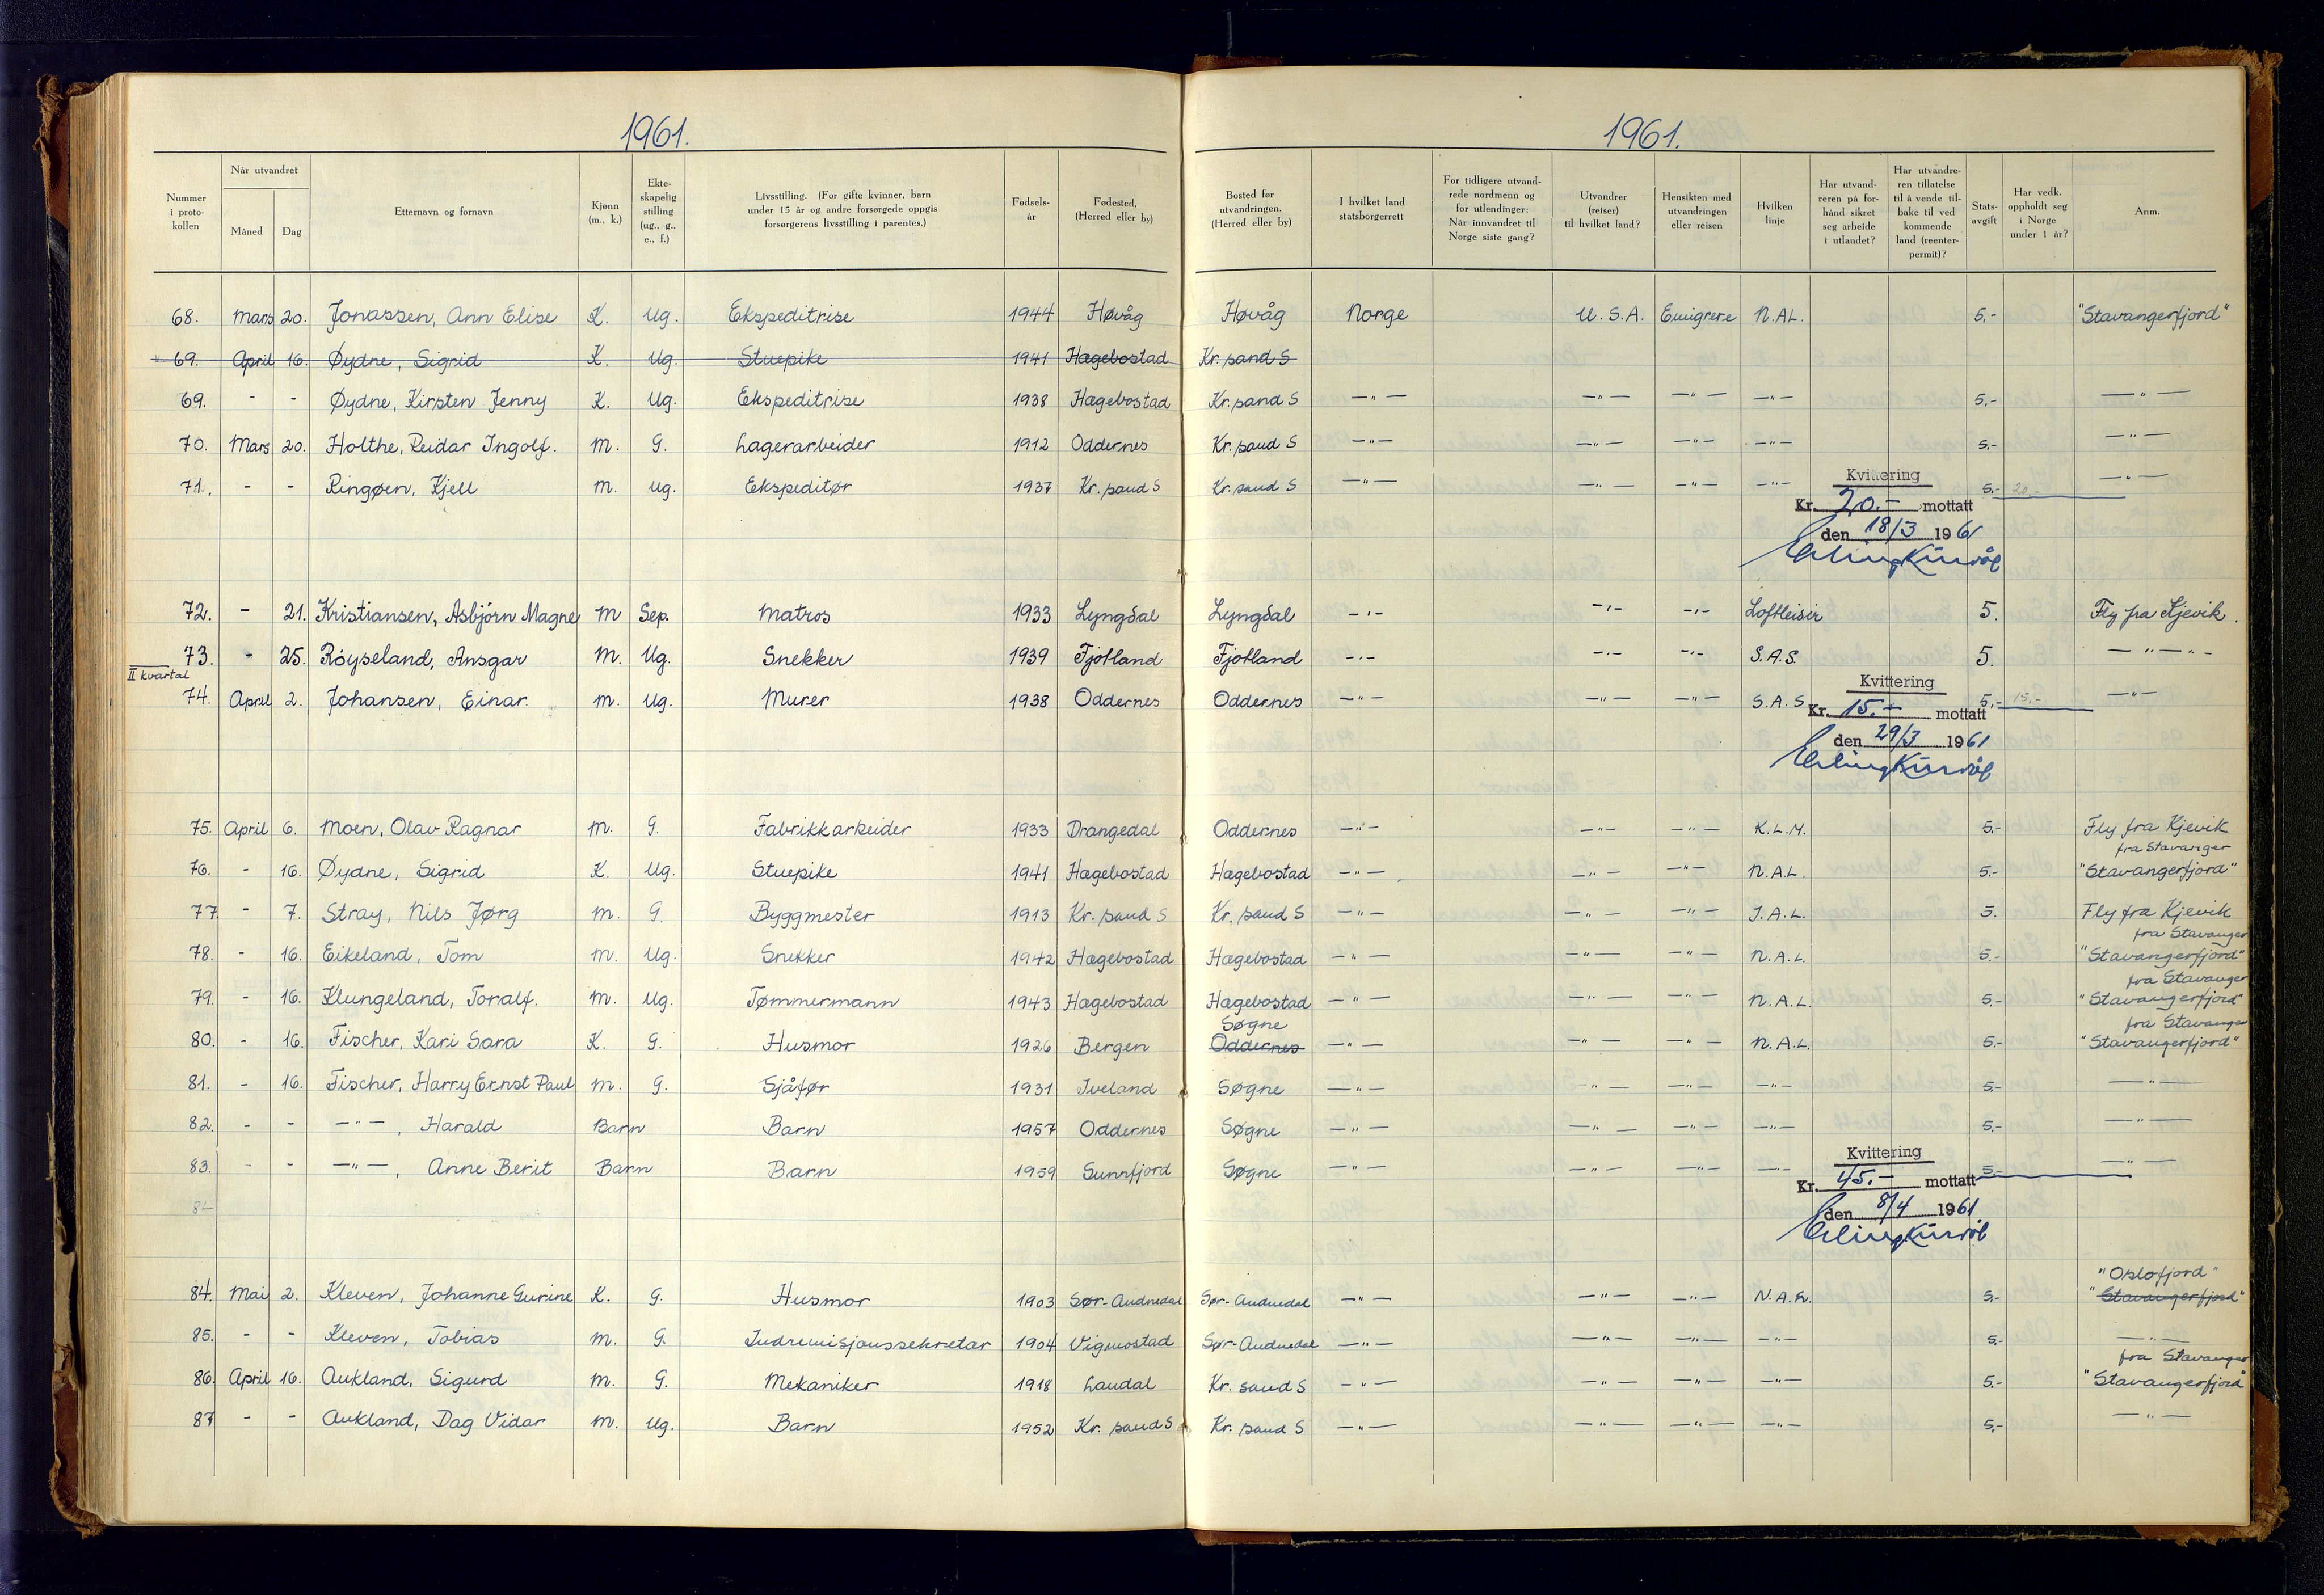 1961.
1961.
Nummer i proto-kollen | Når utvandret Måned Dag | Etternavn og fornavn | Kjønn (m., k.) | Ekte-skapelig stilling (ug., g., e., f.) | Livsstilling. (For gifte kvinner, barn under 15 år og andre forsørgede oppgis forsørgerens livsstilling i parentes.) | Fødsels-år | Fødested. (Herred eller by) | Bosted før utvandringen. (Herred eller by) | I hvilket land statsborgerrett | For tidligere utvand-rede nordmenn og for utlendinger: Når innvandret til Norge siste gang? | Utvandrer (reiser) til hvilket land? | Hensikten med utvandringen eller reisen | Hvilken linje | Har utvand-reren på for-hånd sikret seg arbeide i utlandet? | Har utvandre-ren tillatelse til å vende til-bake til ved kommende land (reenter-permit)? | Stats-avgift | Har vedk. oppholdt seg i Norge under 1 år? | Anm.
68. Mars 20. Jonassen, Ann Elise K. Ug. Ekspeditrise 1944 Høvåg Høvåg Norge U.S.A. Emigrere N.A.L. 5,- "Stavangerfjord"
69. April 16. Øydne, Sigrid K. Ug. Stuepike 1941 Hægebostad Kr.sand S
69. - - Øydne, Kirsten Jenny K. Ug. Ekspeditrise 1938 Hægebostad Kr.sand S —"— —"— —"— —"— 5,- —"—
70. Mars 20. Holthe, Reidar Ingolf. M. G. Lagerarbeider 1912 Oddernes Kr.sand S —"— —"— —"— —"— 5,- —"—
71. - - Ringøen, Kjell M. Ug. Ekspeditør 1937 Kr.sand S Kr.sand S —"— —"— —"— —"— 5,- 20,- —"—
Kvittering
Kr. 20.- mottatt
den 18/3 1961
72. - 21. Kristiansen, Asbjörn Magne M Sep. Matros 1933 Lyngdal Lyngdal -"- -"- -"- Loftleisir 5. Fly fra Kjevik.
73. - 25. Röyseland, Ansgar M. Ug. Snekker 1939 Fjotland Fjotland -"- -"- -"- S.A.S. 5. —"—"-
II kvartal
74. April 2. Johansen, Einar. M. Ug. Murer 1938 Oddernes Oddernes —"— —"— —"— S.A.S. 5,- 15,- —"—
Kvittering
Kr. 15.- mottatt
den 29/3 1961
75. April 6. Moen, Olav Ragnar M. G. Fabrikkarbeider 1933 Drangedal Oddernes —"— —"— —"— K.L.M. 5.- Fly fra Kjevik
fra Stavanger
76. - 16. Øydne, Sigrid K. Ug. Stuepike 1941 Hægebostad Hægebostad —"— —"— —"— N.A.L. 5.- "Stavangerfjord"
77 - 7. Stray, Nils Jørg M. G. Byggmester 1913 Kr.sand S Kr.sand S —"— —"— —"— I.A.L. 5. Fly fra Kjevik
fra Stavanger
78. - 16. Eikeland, Tom M. Ug. Snekker 1942 Hægebostad Hægebostad —"— —"— —"— N.A.L. 5.- "Stavangerfjord"
fra Stavanger
79. - 16. Klungeland, Toralf. M. Ug. Tømmermann 1943 Hægebostad Hægebostad —"— —"— —"— N.A.L. 5,- "Stavangerfjord"
Søgne fra Stavanger
80. - 16. Fischer, Kari Sara K. G. Husmor 1926 Bergen Oddernes —"— —"— —"— N.A.L. 5,- "Stavangerfjord"
81. - 16. Fischer, Harry Ernst Paul M. G. Sjåfør 1931 Iveland Søgne —"— —"— —"— —"— 5,- —"—
82. - - —"—, Harald Barn Barn 1957 Oddernes Søgne —"— —"— —"— —"— 5,- —"—
83. - - —"—, Anne Berit Barn Barn 1959 Sunnfjord Søgne —"— —"— —"— —"— 5,- —"—
Kvittering
Kr. 45.- mottatt
84
den 8/4 1961
"Oslofjord"
84. Mai 2. Kleven, Johanne Gurine K. G. Husmor 1903 Sør-Audnedal Sør-Audnedal —"— —"— —"— N.A.L. 5,- "Stavangerfjord"
85. - - Kleven, Tobias M. G. Indremisjonssekretær 1904 Vigmostad Sør-Audnedal —"— —"— —"— —"— 5,- —"—
fra Stavanger
86. April 16. Aukland, Sigurd M. G. Mekaniker 1918 Laudal Kr. sand S —"— —"— —"— —"— 5.- "Stavangerfjord"
87 - - Aukland, Dag Vidar M. Ug. Barn 1952 Kr. sand S Kr. sand S —"— —"— —"— —"— 5,- —"—